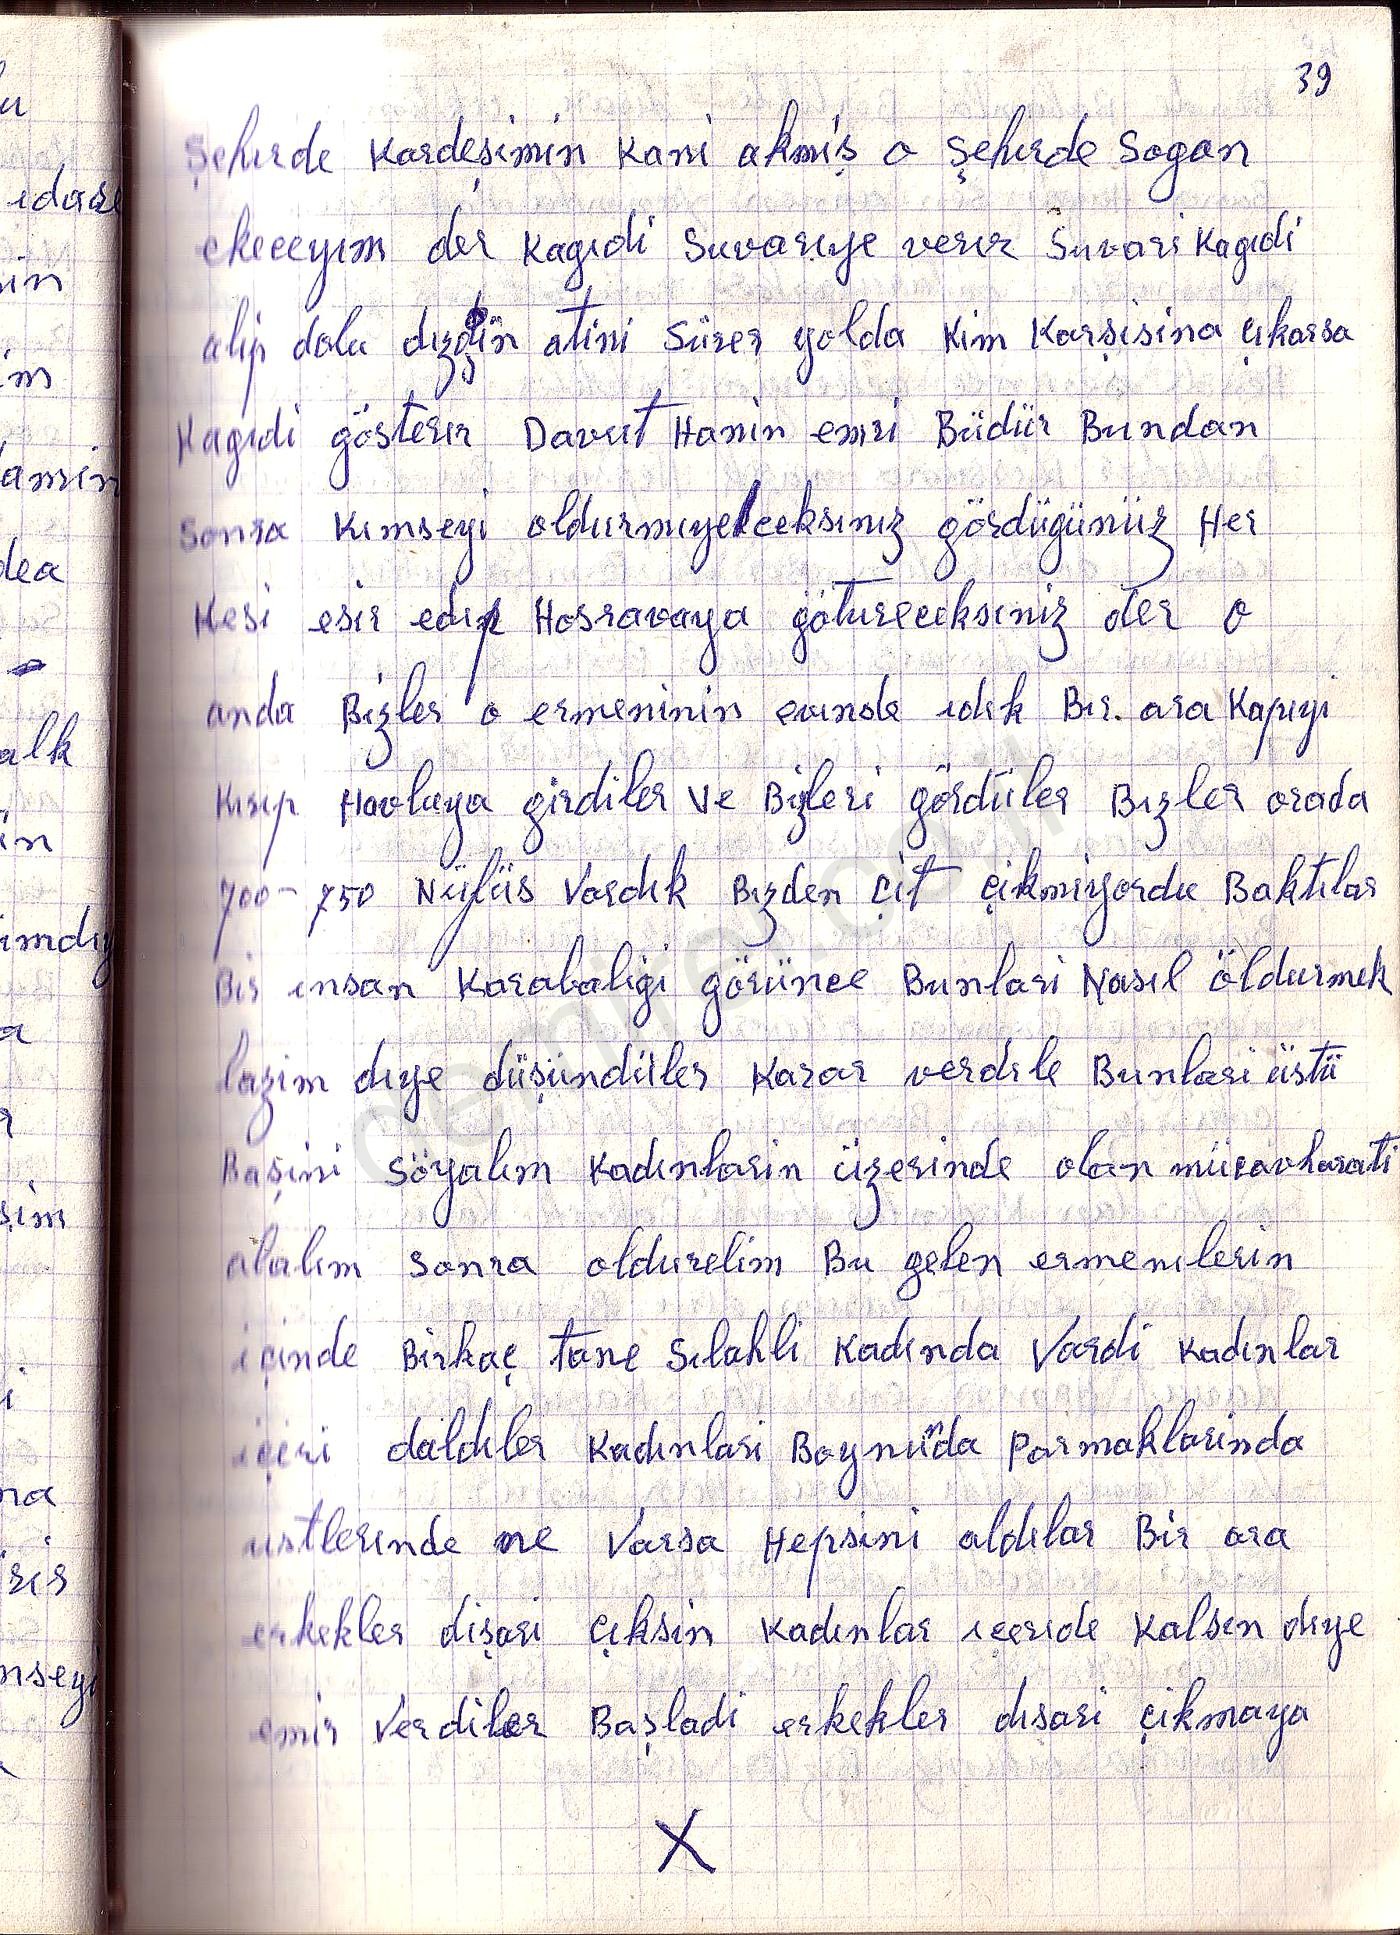 39
Şehırde Kardeşimin Kani akmiş o Şehırde Sogan
ekeceyım der Kagıdi Suvarıye verır Suvari Kagıdi
alıp dolu dızgin atini Sürer yolda Kim Karşisina çıkarsa
Kagıdi gösterır Davut Hanin emri Büdür Bundan
Sonra Kımseyi oldurmıyeceksınız gördügünüz Her
Kesi esir edıp Hosravaya götureceksınız der o
anda Bızler o ermeninin evınde ıdık Bır. ara Kapıyi
Kırıp Havluya girdiler ve Bizleri gördüler Bızler orada
700 - 750 Nüfüs Vardık Bızden çit çikmiyordu Baktılar
Bir ınsan Karabaligi görünce Bunlari Nasıl öldurmek
lazim dıye düşündüler Karar verdıle Bunlari üstü
Başini söyalım Kadınlarin üzerinde olan mücavharati
alalım Sonra oldurelim Bu gelen ermenılerin
içinde Birkaç tane Sılahli Kadında Vardi Kadınlar
içeri daldıler Kadınlari Boynunda Parmaklarinda
ustlerınde ne Varsa Hepsini aldılar Bir ara
erkekler dişari çıksin Kadınlar ıçerıde Kalsen dıye
emir Verdiler Başladi erkekler dısari çikmaya
X
idare
in
im
dea
alk
in
ımdıy
a
şim
i
na
nseyi
demirel.co.il